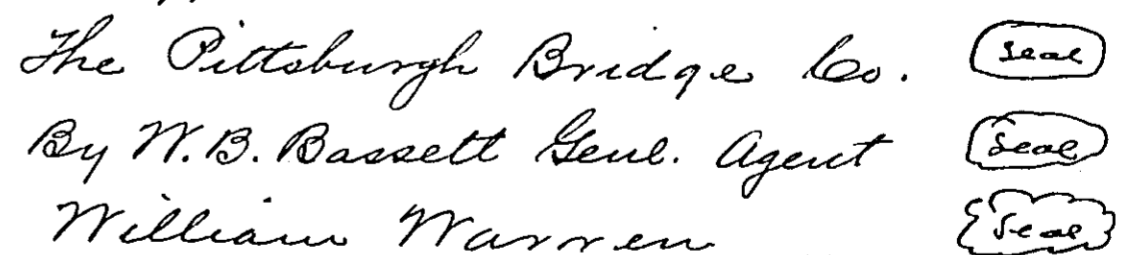 The Pittsburgh Bridge Co. Seal
By W.B. Bassett Genl. Agent Seal
William Warren Seal